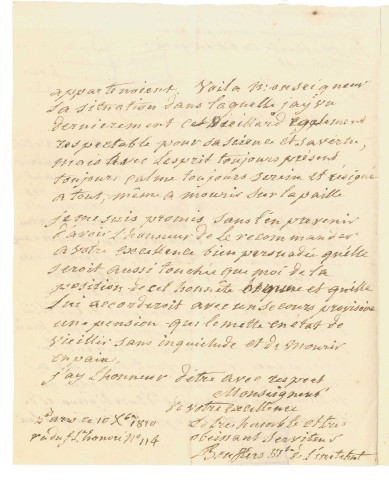 appartenoient. Voila Monseigneur
la situation dans laquelle j'ay vu
dernierement ce Vieillard egalement
respectable pour sa science et sa vertu,
mais avec l'esprit toujours présent
toujours calme toujours serein et résigné
a tout, même a mourir sur la paille
je me suis promis sans l'en prevenir
d'avoir l'honneur de le recommander
a votre excellence bien persuadée qu'elle
seroit aussi touchée que moi de la
position de cet honnête homme et qu'elle
lui accorderoit avec un secours provisoire
une pension qui le mette en état de
vieillir sans inquietude et de mourir
en paix.
j'ay l'honneur d'etre avec respect
Monseigneur
de votre excellence
Le tres humble et tres
obeissant serviteur
Boufflers de l'institut
Paris ce 10 Xbre 1810
rue du f. St honoré No 114